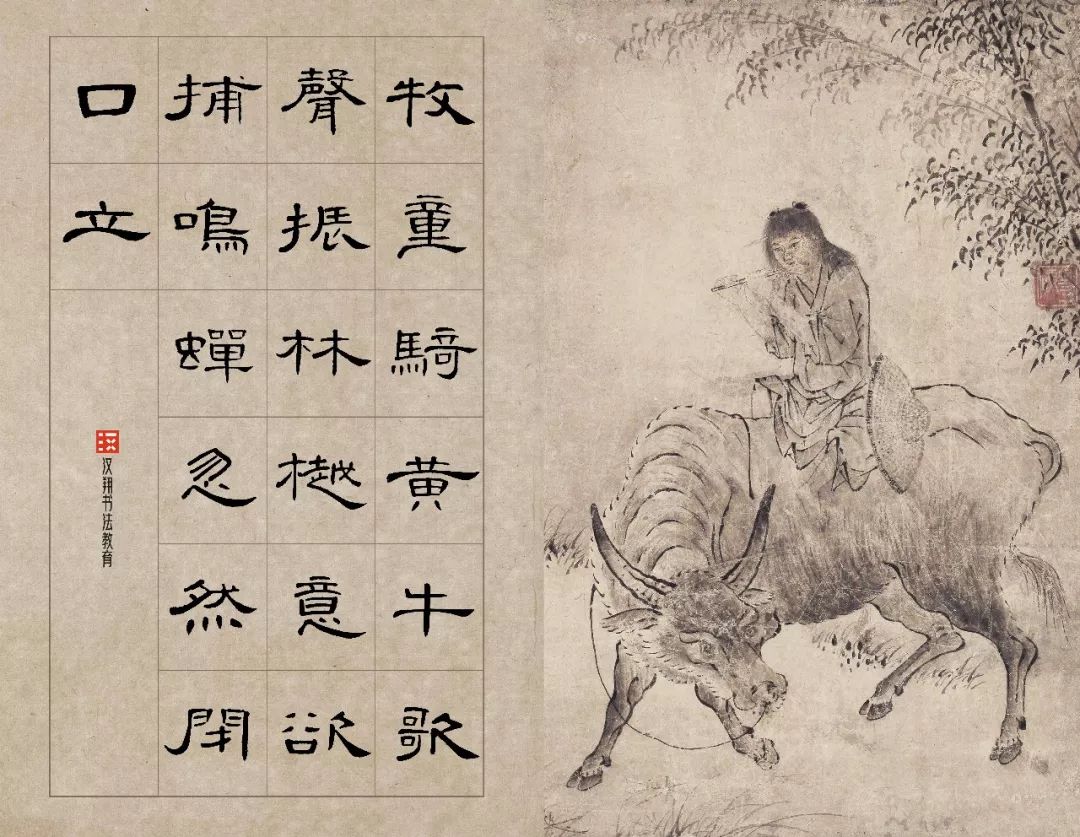 牧童騎黄牛歌
聲振林樾意欲
捕鳴蟬忽然閉
口立
汉翔书法教育